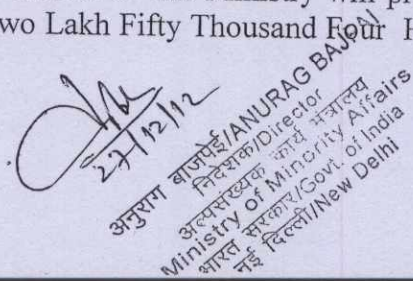 wo Lakh Fifty Thousand Four
27/12/12
अनुराग बाजपेई/ANURAG BAJPAI
निदेशक/Director
अल्पसंख्यक कार्य मंत्रालय
Ministry of Minority Affairs
भारत सरकार/Govt. of India
नई दिल्ली/New Delhi